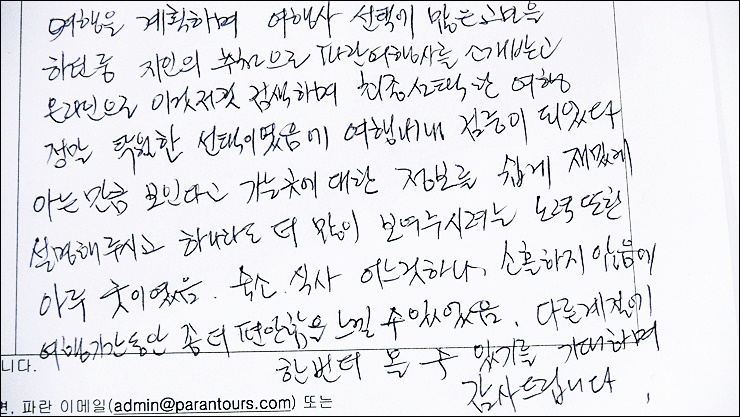 여행을 계획하며 여행사 선택에 많은 고민을
하던중 지인의 추천으로 파란여행사를 소개받고
온라인으로 이것저것 검색하며 최종선택한 여행
정말 탁월한 선택이였음에 여행내내 점등이 되었다
아는만큼 보인다고 가는곳에 대한 정보를 쉽게 재밌게
설명해주시고 하나라도 더 많이 보여주시려는 노력 또한
아주 굿이였음. 숙소.식사 어느것하나 소홀하지 않음에
여행기간동안 좀 더 편안함을 느낄 수 있었음. 다른계절에
한번더 올 수 있기를 기대하며
감사드립니다.
니다.
면, 파란 이메일(admin@parantours.com) 또는